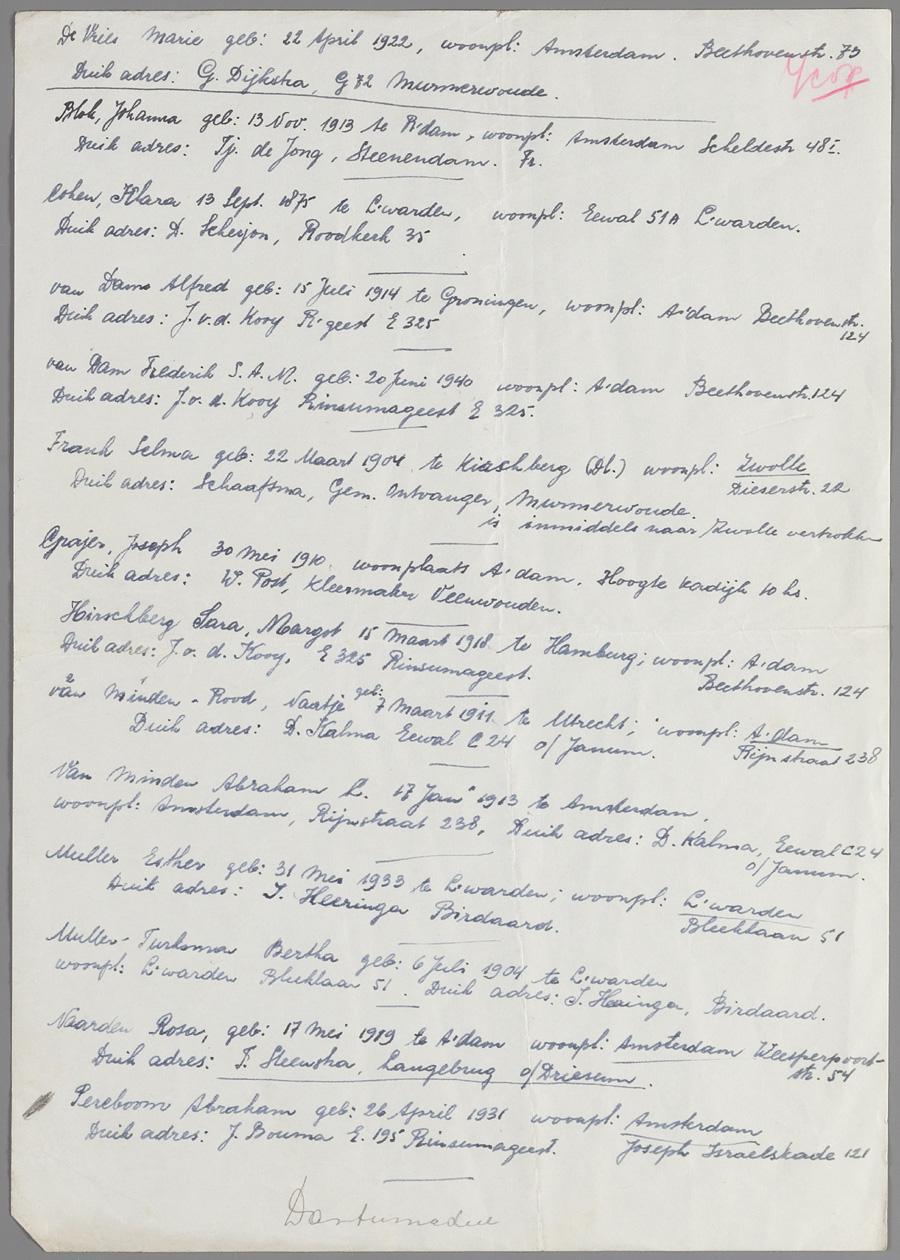 De Vries Marie geb: 22 April 1922, woonpl: Amsterdam. Beethovenstr. 73
Duik adres: G. Dijkstra, G 72 Murmerwoude.
Blok, Johanna geb: 13 Nov. 1913 te R'dam, woonpl: Amsterdam Scheldestr 48 I.
Duik adres: Tj. de Jong, Steenendam. Fr.
Cohen, Klara 13 Sept. 1875 te L.warden, woonpl: Eewal 51A L.warden.
Duik adres: D. Scheijon, Roodkerk 35
van Dam Alfred geb: 15 Juli 1914 te Groningen, woonpl: A'dam Beethovenstr.
124
Duik adres: J. v. d. Kooy R.geest E 325
van Dam Frederik S. A. M. geb: 20 Juni 1940 woonpl: A'dam Beethovenstr. 124
Duik adres: J. v. d. Kooy Rinsumageest E 325.
Frank Selma geb: 22 Maart 1904 te Kirschberg (Dl.) woonpl: Zwolle
Dieserstr. 22
Duik adres: Schaafsma, Gem. Ontvanger, Murmerwoude.
is inmiddels naar Zwolle vertrokken
Joseph 30 Mei 1910. woonplaats A'dam. Hoogte Kadijk 10 hs.
Duik adres: W. Post, Kleermaker Veenwouden.
Hirschberg Sara, Margot 15 Maart 1918 te Hamburg; woonpl: A'dam
Beethovenstr. 124
Duik adres: J. v. d. Kooy, E 325 Rinsumageest.
van Minden - Rood, Naatje geb: 7 Maart 1911 te Utrecht; woonpl: A.dam
Rijnstraat 238
Duik adres: D. Kalma Eewal C 24 o/ Janum.
Van Minden Abraham L. 17 Jan 1913 te Amsterdam,
woonpl: Amsterdam, Rijnstraat 238, Duik adres: D. Kalma, Eewal C 24
o/ Janum.
Muller Esther geb: 31 Mei 1933 te L.warden; woonpl: L.warden
Bleeklaan 51
Duik adres: T. Heeringa Birdaard.
Muller- Turksma Bertha geb: 6 Juli 1904 te L.warden
woonpl: L.warden Bleeklaan 51. Duik adres: T. Heeringa, Birdaard.
Naarden Rosa, geb: 17 Mei 1919 te A'dam woonpl: Amsterdam Weesperpoort-
str. 54
Duik adres: F. Steenstra, Langebrug o/Driesum.
Pereboom Abraham geb: 26 April 1931 woonpl: Amsterdam
Joseph Israelskade 121
Duik adres: J. Bouma E. 195 Rinsumageest.